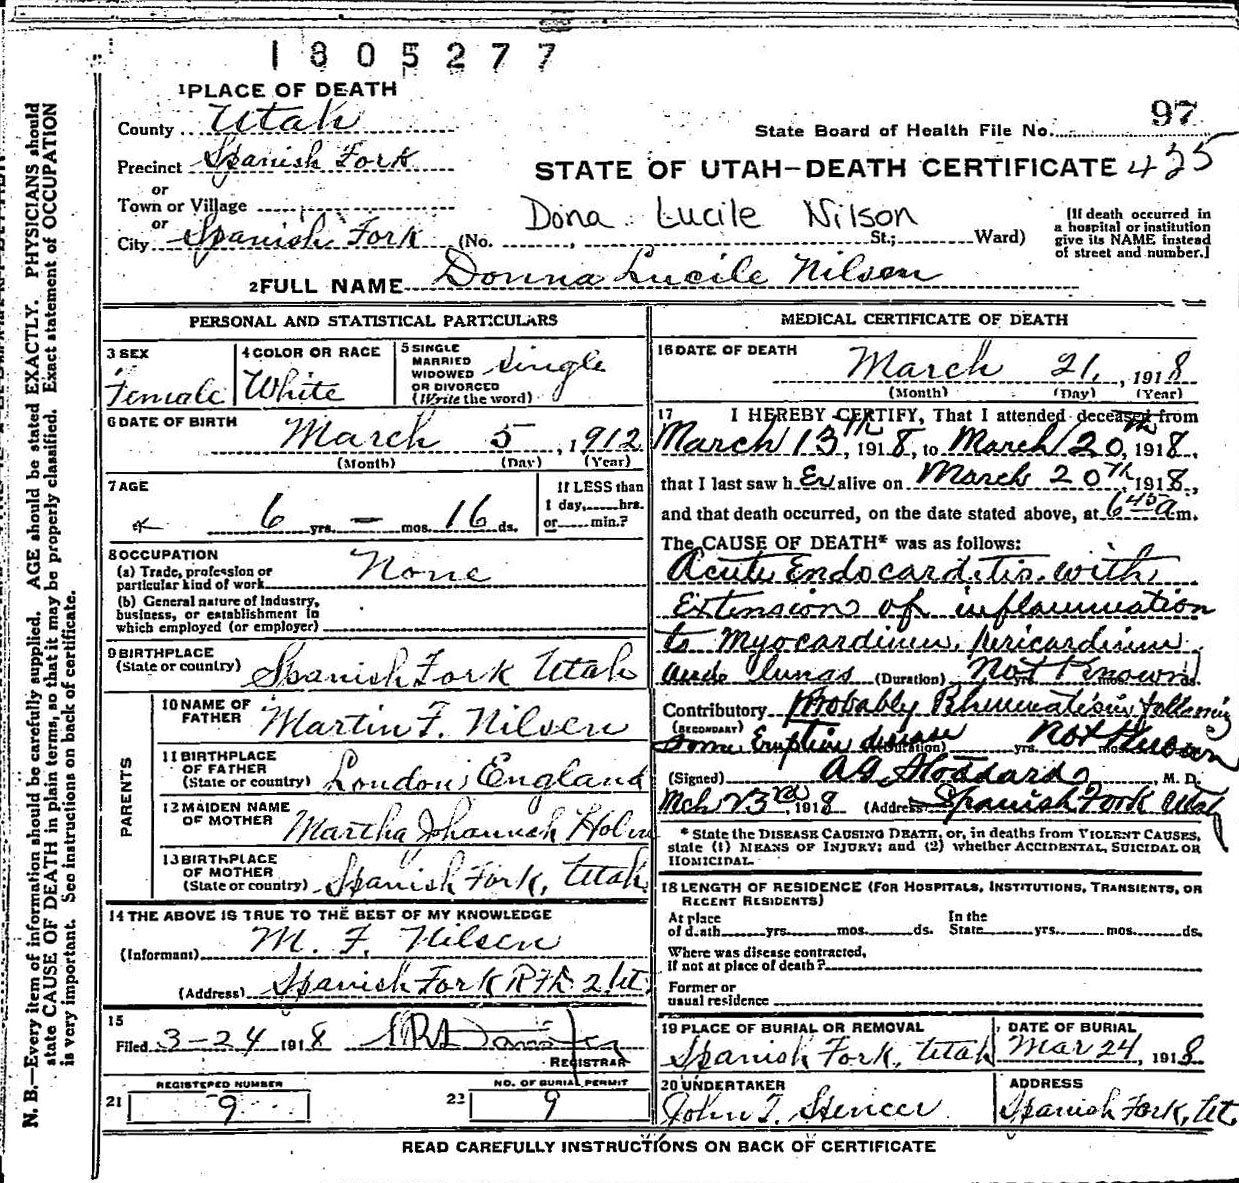 1805277
1 PLACE OF DEATH
County Utah
Precinct Spanish Fork
or
Town or Village
or
City Spanish Fork (No. , St.; Ward)
State Board of Health File No. 97
STATE OF UTAH—DEATH CERTIFICATE 425
Dona Lucile Nilson
[If death occurred in
a hospital or institution
give its NAME instead
of street and number.]
2 FULL NAME Donna Lucile Nilsen
PERSONAL AND STATISTICAL PARTICULARS
3 SEX
Female
4 COLOR OR RACE
White
5 SINGLE
MARRIED
WIDOWED
OR DIVORCED
(Write the word)
Single
6 DATE OF BIRTH
March 5, 1912
(Month) (Day) (Year)
7 AGE
6 yrs. — mos. 16 ds.
If LESS than
1 day, hrs.
or min.?
8 OCCUPATION
(a) Trade, profession or
particular kind of work
None
(b) General nature of Industry,
business, or establishment in
which employed (or employer)
9 BIRTHPLACE
(State or country) Spanish Fork Utah
PARENTS
10 NAME OF
FATHER Martin F. Nilsen
11 BIRTHPLACE
OF FATHER
(State or country) London England
12 MAIDEN NAME
OF MOTHER Martha Holm
13 BIRTHPLACE
OF MOTHER
(State or country) Spanish Fork, Utah
14 THE ABOVE IS TRUE TO THE BEST OF MY KNOWLEDGE
(Informant) M. F. Nilsen
(Address) Spanish Fork RFD 2 Ut
15
Filed 3-24 1918
REGISTRAR
REGISTERED NUMBER
21 9
NO. OF BURIAL PERMIT
22 9
MEDICAL CERTIFICATE OF DEATH
16 DATE OF DEATH
March 21, 1918
(Month) (Day) (Year)
17 I HEREBY CERTIFY, That I attended deceased from
March 13th, 1918, to March 20th, 1918,
that I last saw her alive on March 20th, 1918,
and that death occurred, on the date stated above, at 6 45 a m.
The CAUSE OF DEATH* was as follows:
Acute Endocarditis with
Extension of inflammation
to myocardium, pericardium
and lungs (Duration) Not Known yrs. mos. ds.
Contributory Probably Rhumatism following
(SECONDARY)
Some Eruptive disease (Duration) yrs. Not Known mos.
(Signed) A G Stoddard, M. D.
Mch 23rd, 1918 (Address) Spanish Fork Utah
* State the DISEASE CAUSING DEATH, or, in deaths from VIOLENT CAUSES,
state (1) MEANS OF INJURY; and (2) whether ACCIDENTAL, SUICIDAL OR
HOMICIDAL.
18 LENGTH OF RESIDENCE (FOR HOSPITALS, INSTITUTIONS, TRANSIENTS, OR
RECENT RESIDENTS)
At place
of death yrs. mos. ds.
In the
State yrs. mos. ds.
Where was disease contracted,
if not at place of death?
Former or
usual residence
19 PLACE OF BURIAL OR REMOVAL
Spanish Fork, Utah
DATE OF BURIAL
Mar 24, 1918
20 UNDERTAKER
John T. Spencer
ADDRESS
Spanish Fork, Ut.
READ CAREFULLY INSTRUCTIONS ON BACK OF CERTIFICATE
N. B.—Every item of information should be carefully supplied. AGE should be stated EXACTLY. PHYSICIANS should
state CAUSE OF DEATH in plain terms, so that it may be properly classified. Exact statement of OCCUPATION
is very important. See instructions on back of certificate.